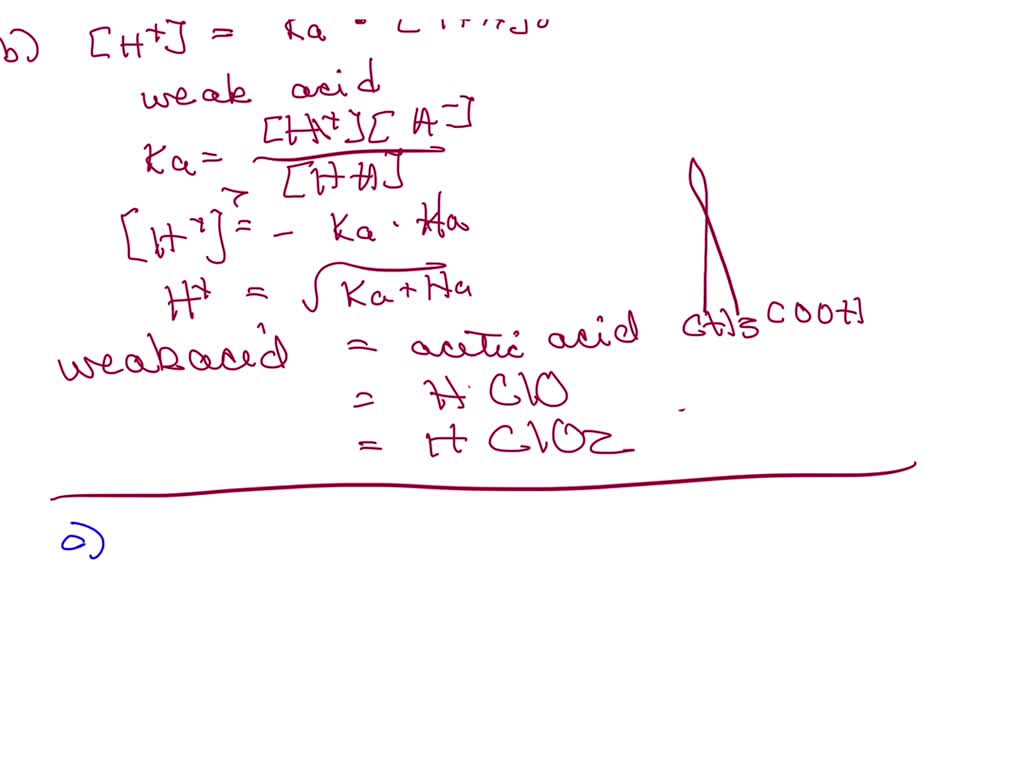 b) [H+] = Ka · [HA]0
weak acid
Ka = [HA+][A-]
[HA]
[H+]² = - Ka · Ha
H+ = √Ka+Ha
weakacid = acetic acid CH3COOH
= H ClO
= H ClO2
a)